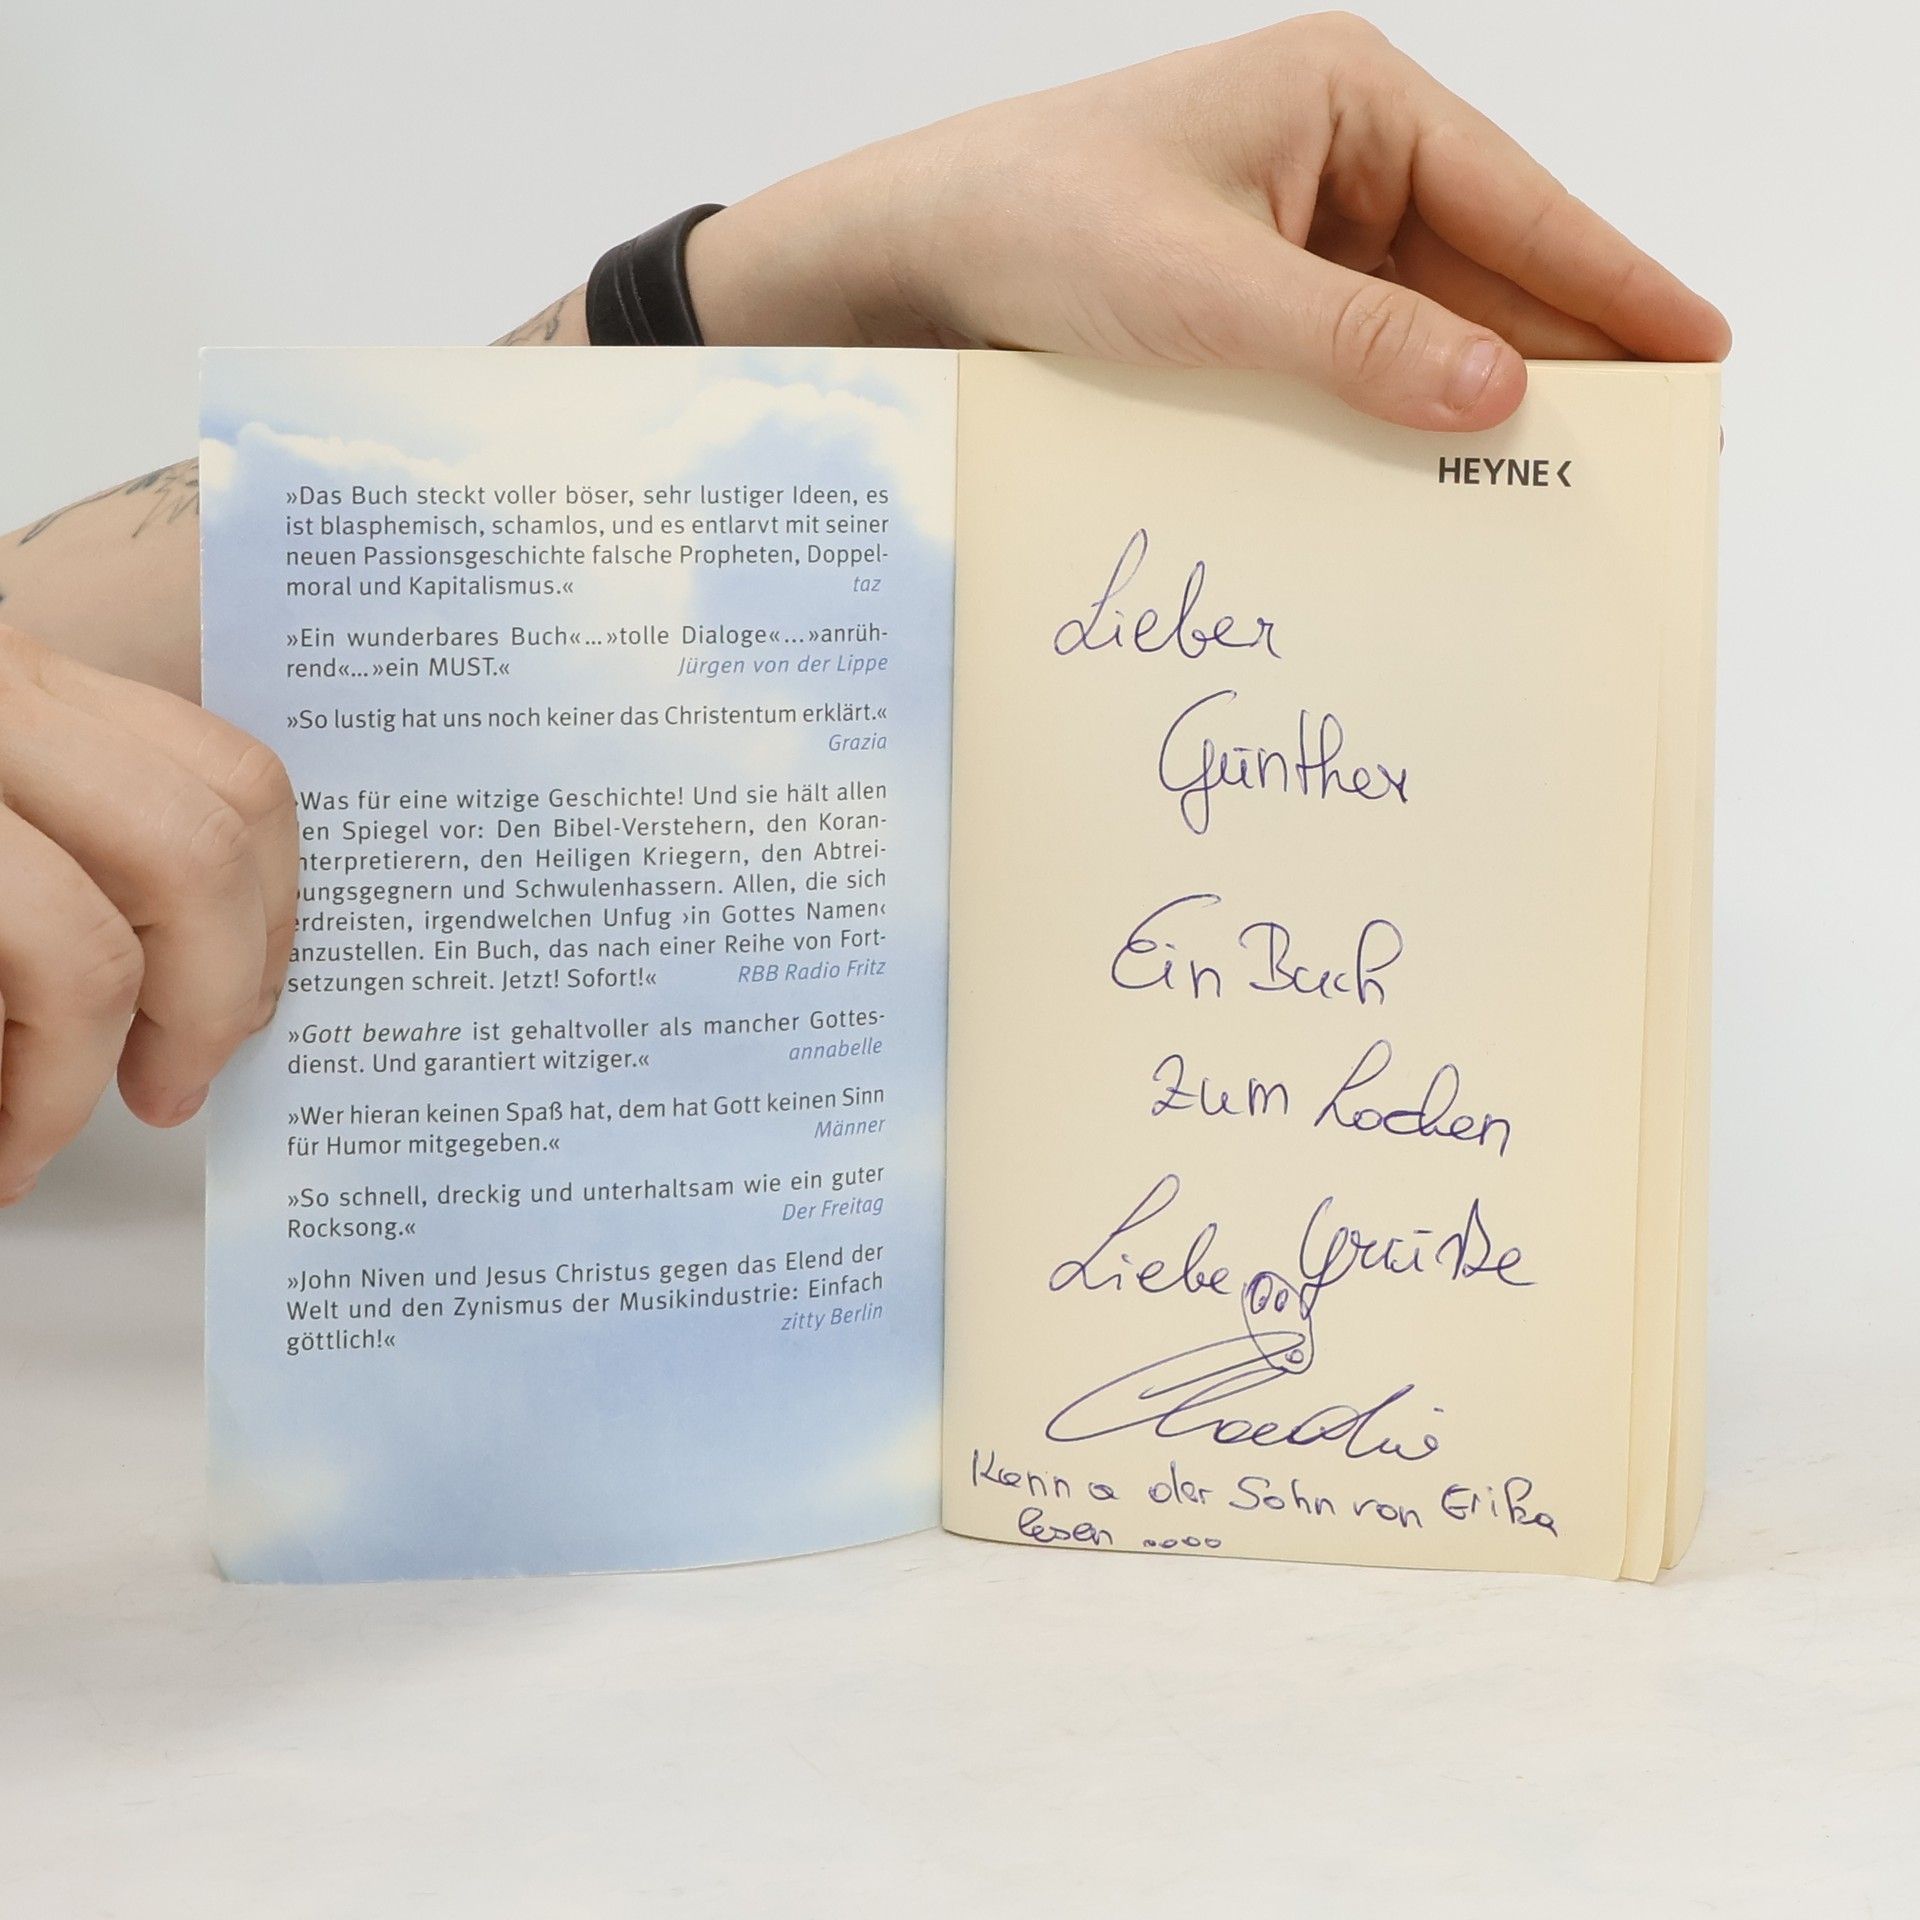 »Das Buch steckt voller böser, sehr lustiger Ideen, es
ist blasphemisch, schamlos, und es entlarvt mit seiner
neuen Passionsgeschichte falsche Propheten, Doppel-
moral und Kapitalismus.« taz
»Ein wunderbares Buch«...»tolle Dialoge«...»anrüh-
rend«...»ein MUST.« Jürgen von der Lippe
»So lustig hat uns noch keiner das Christentum erklärt.«
Grazia
»Was für eine witzige Geschichte! Und sie hält allen
den Spiegel vor: Den Bibel-Verstehern, den Koran-
nterpretierern, den Heiligen Kriegern, den Abtrei-
bungsgegnern und Schwulenhassern. Allen, die sich
erdreisten, irgendwelchen Unfug ›in Gottes Namen‹
anzustellen. Ein Buch, das nach einer Reihe von Fort-
setzungen schreit. Jetzt! Sofort!« RBB Radio Fritz
»Gott bewahre ist gehaltvoller als mancher Gottes-
dienst. Und garantiert witziger.« annabelle
»Wer hieran keinen Spaß hat, dem hat Gott keinen Sinn
für Humor mitgegeben.« Männer
»So schnell, dreckig und unterhaltsam wie ein guter
Rocksong.« Der Freitag
»John Niven und Jesus Christus gegen das Elend der
Welt und den Zynismus der Musikindustrie: Einfach
göttlich!« zitty Berlin
HEYNE<
Lieber
Günther
Ein Buch
zum Lachen
Liebe Grüße
Claudia
Kann a der Sohn von Erika
lesen ....